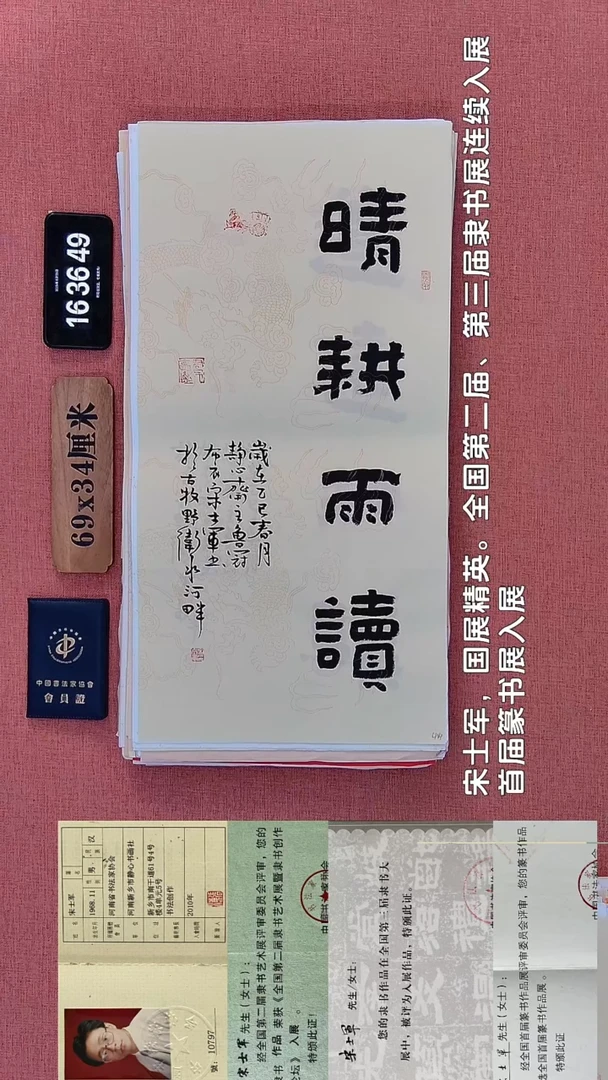 宋士军，国展精英。全国第二届、第三届隶书展连续入展
首届篆书展入展
16:36:49
69x34厘米
中國書法家協會
會員證
晴耕雨讀
歲在乙巳春月
静心齋主魯冠
布衣宋士軍書
於古牧野衛水河畔
宋士军
1968.11
男
汉
河南省书法家协会
河南新乡市静心书画社
新乡市南干道61号4号
楼4单元5号
书法创作
2010年
號：10797
宋士军 先生（女士）：
经全国第二届隶书艺术展评审委员会评审，您的
隶书 作品 荣获《全国第二届隶书艺术展暨隶书创作
论坛》入展 。
特颁此证！
宋士军 先生/女士：
您的隶书作品在全国第三届隶书大
展中，被评为入展作品，特颁此证。
士军 先生（女士）：
经全国首届篆书作品展评审委员会评审，您的篆书作品
选全国首届篆书作品展。
特颁此证